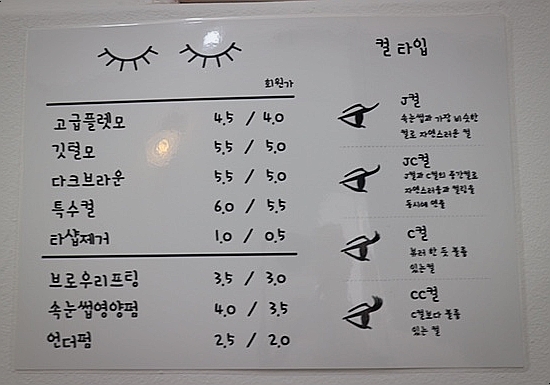 회원가
고급플렛모 4.5 / 4.0
깃털모 5.5 / 5.0
다크브라운 5.5 / 5.0
특수컬 6.0 / 5.5
타샵제거 1.0 / 0.5
브로우리프팅 3.5 / 3.0
속눈썹영양펌 4.0 / 3.5
언더펌 2.5 / 2.0
컬 타입
J컬
속눈썹과 가장 비슷한
컬로 자연스러운 컬
JC컬
J컬과 C컬의 중간컬로
자연스러움과 컬링을
동시에 연출
C컬
뷰러 한 듯 볼륨
있는컬
CC컬
C컬보다 볼륨
있는 컬